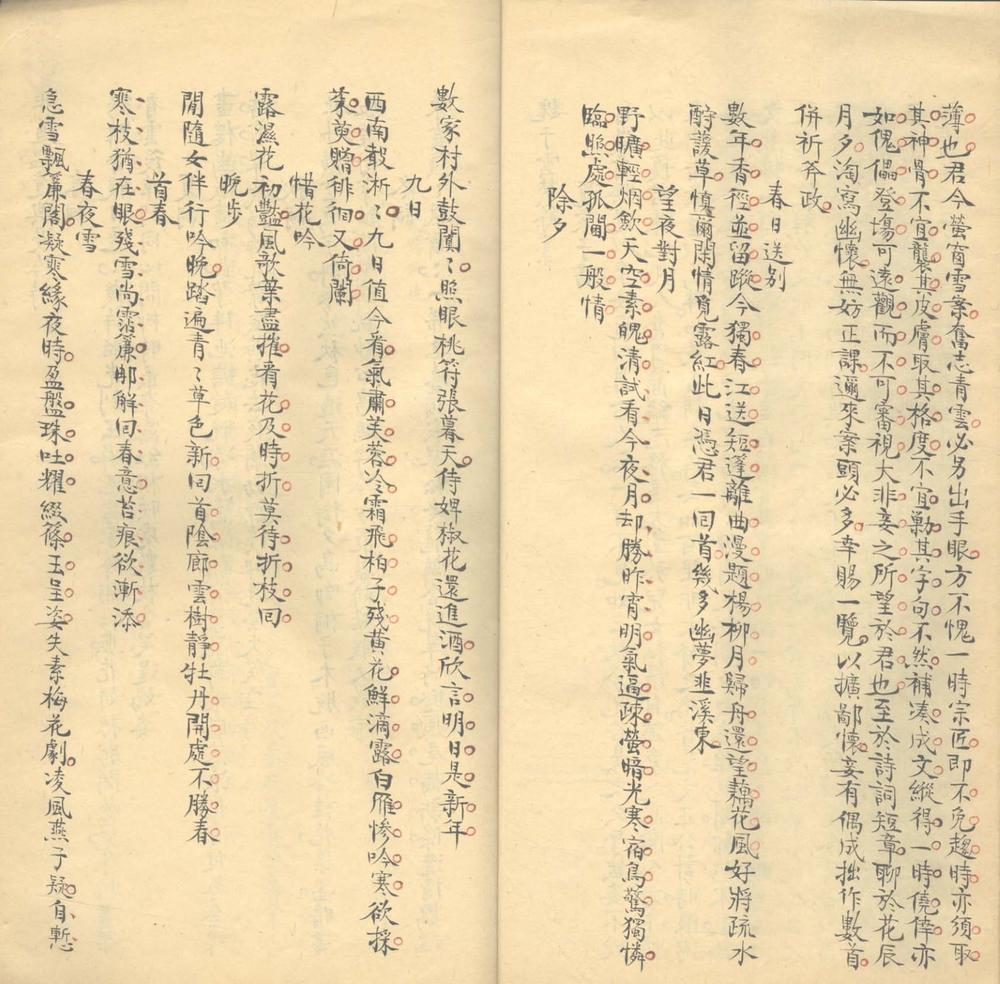 薄也君今螢窗雪案奮志青雲必另出手眼方不愧一時宗匠即不免趨時亦須取
其神骨不宜襲其皮膚取其格度不宜勦其字句不然補湊成文縱得一時僥倖亦
如傀儡登塲可遠觀而不可審視大非妾之所望於君也至於詩詞短章聊於花辰
月夕淘寫幽懷無妨正課邇來案頭必多幸賜一覽以擴鄙懷妾有偶成拙作數首
併祈斧政
春日送别
數年香徑並留蹤今獨春江送短篷離曲漫題楊柳月歸舟還望藕花風好將疏水
酧護草慎爾閑情覓露紅此日憑君一回首幾多幽夢韭溪東
望夜對月
野曠輕烟歛天空素魄清試看今夜月却勝昨宵明氣逼疎螢暗光寒宿鳥驚獨憐
臨照處孤閨一般情
除夕
數家村外鼓闐〻照眼桃符張暮天侍婢椒花還進酒欣言明日是新年
九日
西南敧淅〻九日值今肴氣肅芙蓉冷霜飛柏子殘黄花鮮滴露白雁慘吟寒欲採
茱萸贈徘徊又倚闌
惜花吟
露濕花初豔風歌葉盡摧看花及時折莫待折枝回
晚步
閒隨女伴行吟晚踏遍青〻草色新回首陰廊雲樹靜牡丹開處不勝春
首春
寒枝猶在眼殘雪尚霑簾那解回春意苔痕欲漸添
春夜雪
急雪飄簾闊凝寒緣夜時盈盤珠吐耀綴篠玉呈姿失素梅花劇凌風燕子疑自慙